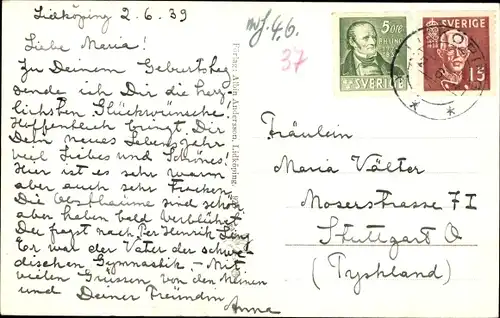 Lidköping 2.6.39
Liebe Maria!
Zu Deinem Geburtstag
sende ich Dir die herz-
lichsten Glückwünsche.
Hoffentlich bringt Dir
Dein neues Lebensjahr
viel Liebes und Schönes!
Hier ist es sehr warm
aber auch sehr trocken.
Die Obstbäume sind schön
aber haben bald verblüht.
Du fragst nach Per Henrik Ling
Er war der Vater der schwe-
dischen Gymnastik – Mit
vielen Grüssen von den Meinen
und Deiner Freundin
Anna
4.6.
37
Förlag: Allan Andersson, Lidköping.
5 ÖRE
P.H. LING
SVERIGE
SVERIGE
15
Fräulein
Maria Völter
Moserstrasse 7I
Stuttgart O
(Tyskland)